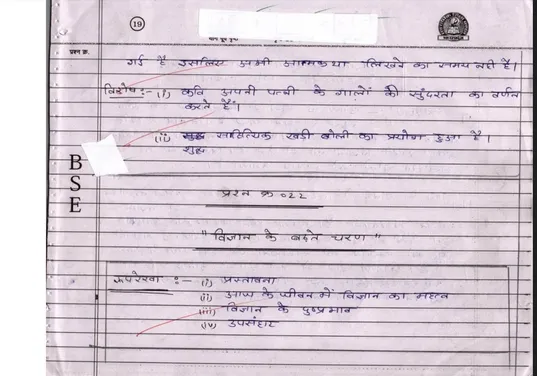 19
प्रश्न क्र.
गई है इसलिए अभी आत्मकथा लिखने का समय नही है।
विशेष :- (i) कवि अपनी पत्नी के गालों की सुंदरता का वर्णन
करते हैं।
(ii) साहित्यिक खड़ी बोली का प्रयोग हुआ है।
शुद्ध
B
S
E
प्रश्न क्र० 22
"विज्ञान के बढ़ते चरण"
रूपरेखा :- (i) प्रस्तावना
(ii) आज के जीवन में विज्ञान का महत्व
(iii) विज्ञान के दुष्प्रभाव
(iv) उपसंहार